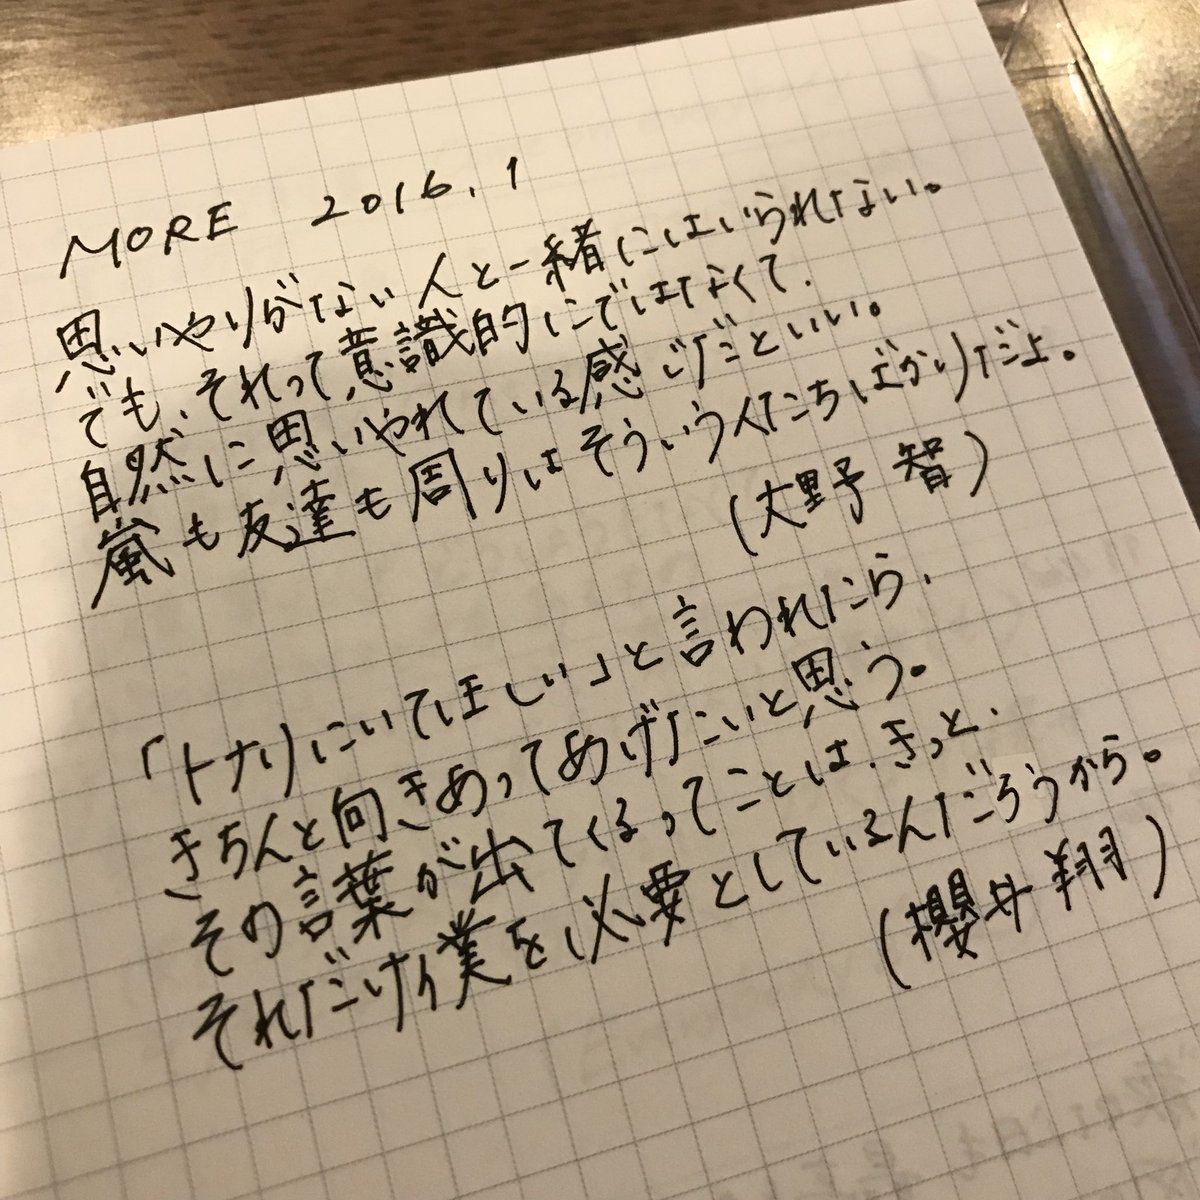 MORE 2016.1
思いやりがない人と一緒にはいられない。
でも、それって意識的にではなくて、
自然に思いやれている感じだといい。
嵐も友達も周りはそういう人たちばかりだよ。
(大野 智)
「トナリにいてほしい」と言われたら、
きちんと向きあってあげたいと思う。
その言葉が出てくるってことは、きっと、
それだけ僕を必要としているんだろうから。
(櫻井 翔)